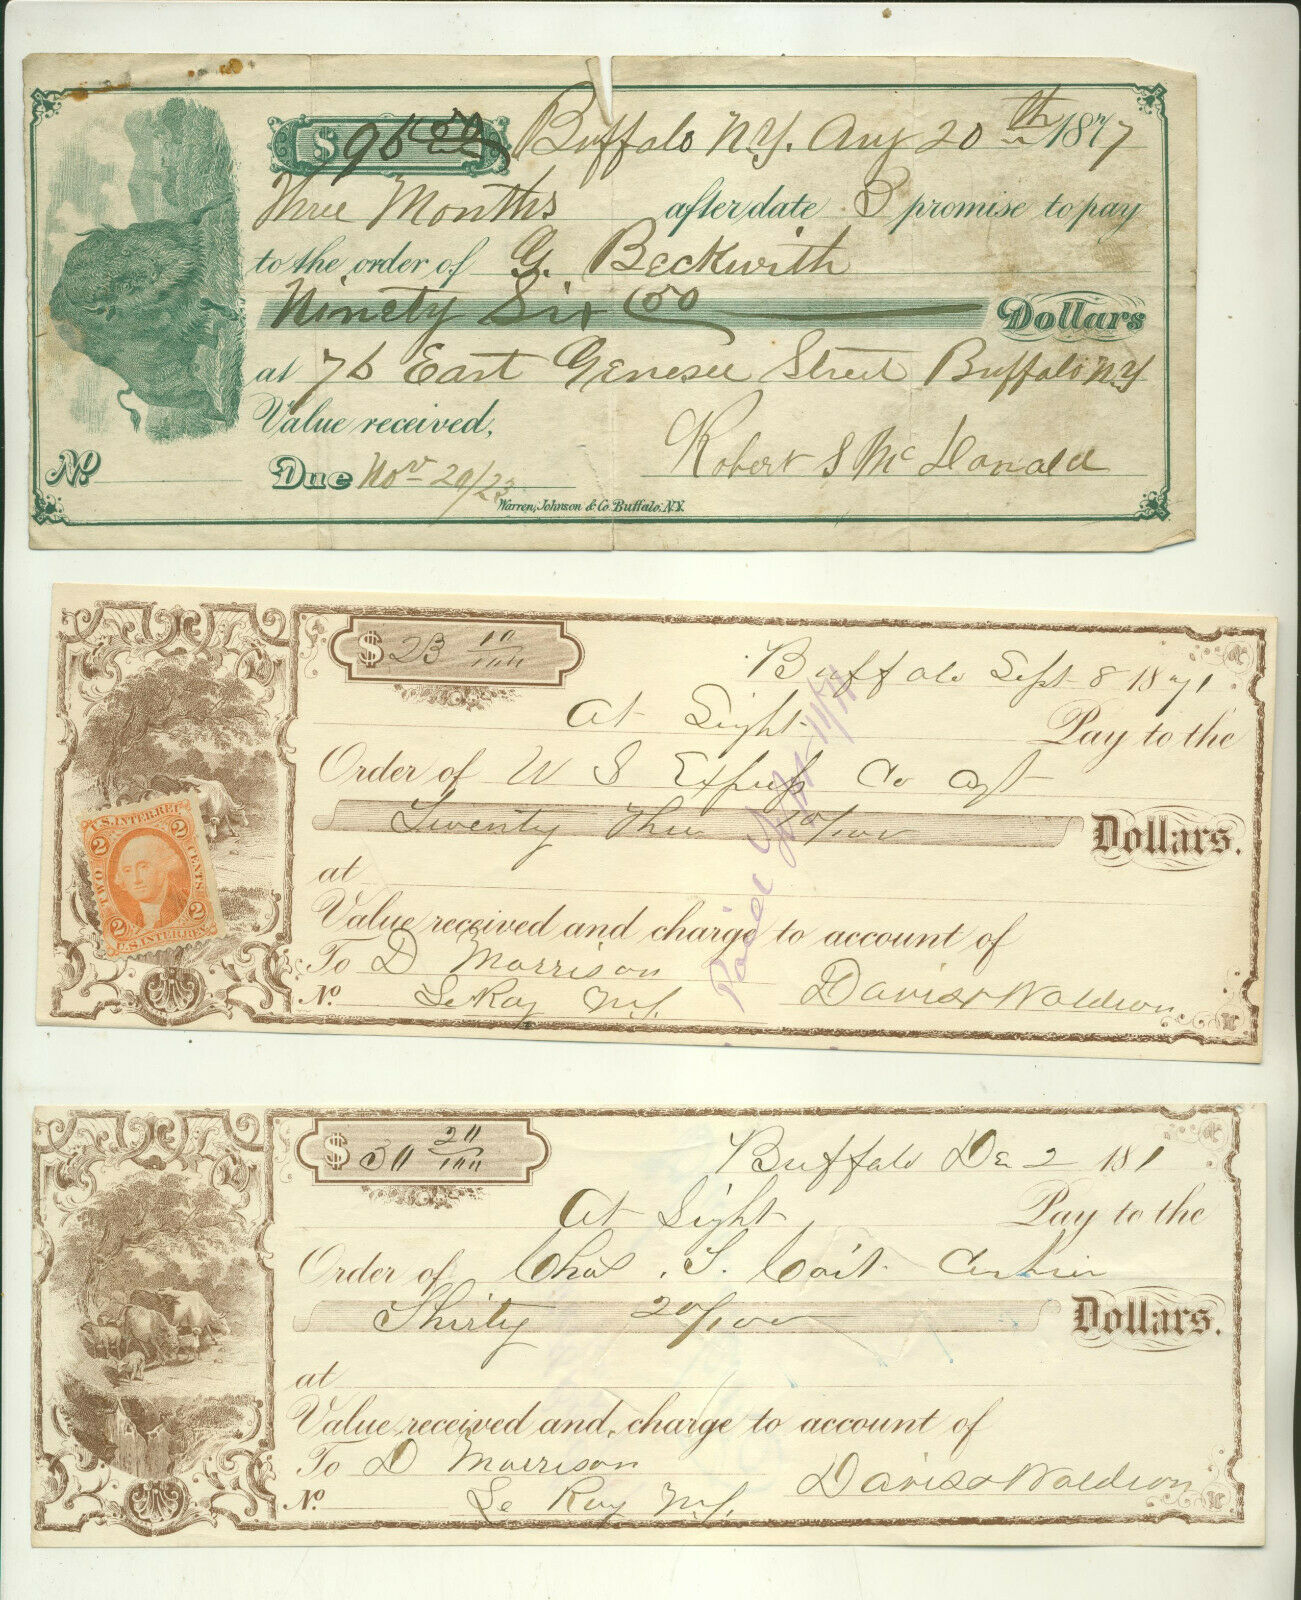 $96 50/100 Buffalo N.Y. Aug 20th 1877
Three Months after date I promise to pay
to the order of G. Beckwith
Ninety Six 50 Dollars
at 76 East Genesee Street Buffalo N.Y
Value received,
Robert S McDonald
No. Due Nov 20/23
Warren, Johnson & Co. Buffalo, N.Y.
$23 10/100
Buffalo Sept 8 1871
At Sight Pay to the
Order of U S Express Co Agt
Twenty Three 10/100 Dollars.
at
Value received and charge to account of
To D Morrison
No. Le Roy N.Y. Davis & Waldron
Paid
U.S. INTER. REV.
2 2
TWO CENTS
2 2
U.S. INTER. REV.
$30 20/100
Buffalo De 2 181
At Sight Pay to the
Order of Chas. S. Coit Cashier
Thirty 20/100 Dollars.
at
Value received and charge to account of
To D Morrison
No. Le Roy N.Y. Davis & Waldron